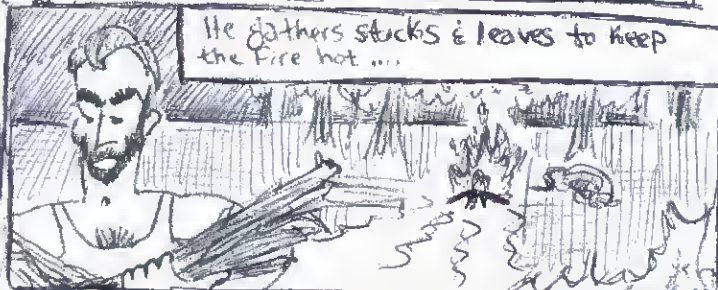 He gathers sticks & leaves to keep
the fire hot ....